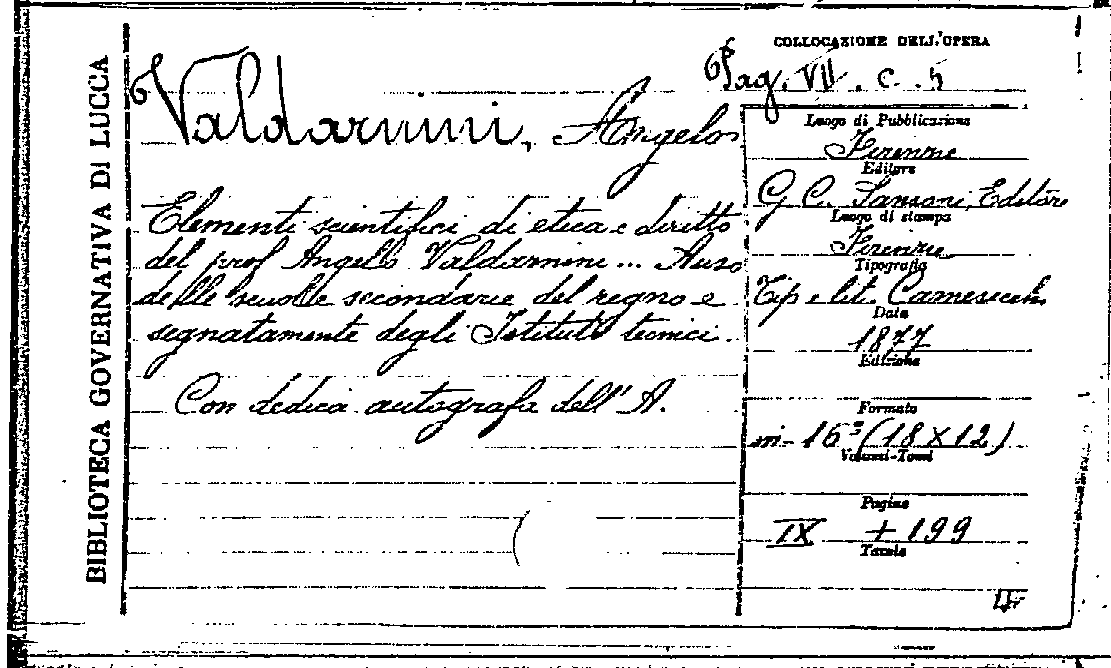 BIBLIOTECA GOVERNATIVA DI LUCCA
COLLOCAZIONE DELL'OPERA
Pag. VII. c. 5
Valdarnini, Angelo
Elementi scientifici di etica e diritto
del prof Angelo Valdarnini... Auso
delle scuole secondarie del regno e
segnatamente degli Istituti tecnici.
Con dedica autografa dell'A.
Luogo di Pubblicazione
Firenze
Editore
G. C. Sansoni, Editore
Luogo di stampa
Firenze
Tipografia
Tip e lit. Carnesecchi
Data
1877
Edizione
Formato
in-16° (18 X 12)
Volumi-Tomi
Pagine
IX + 199
Tavole